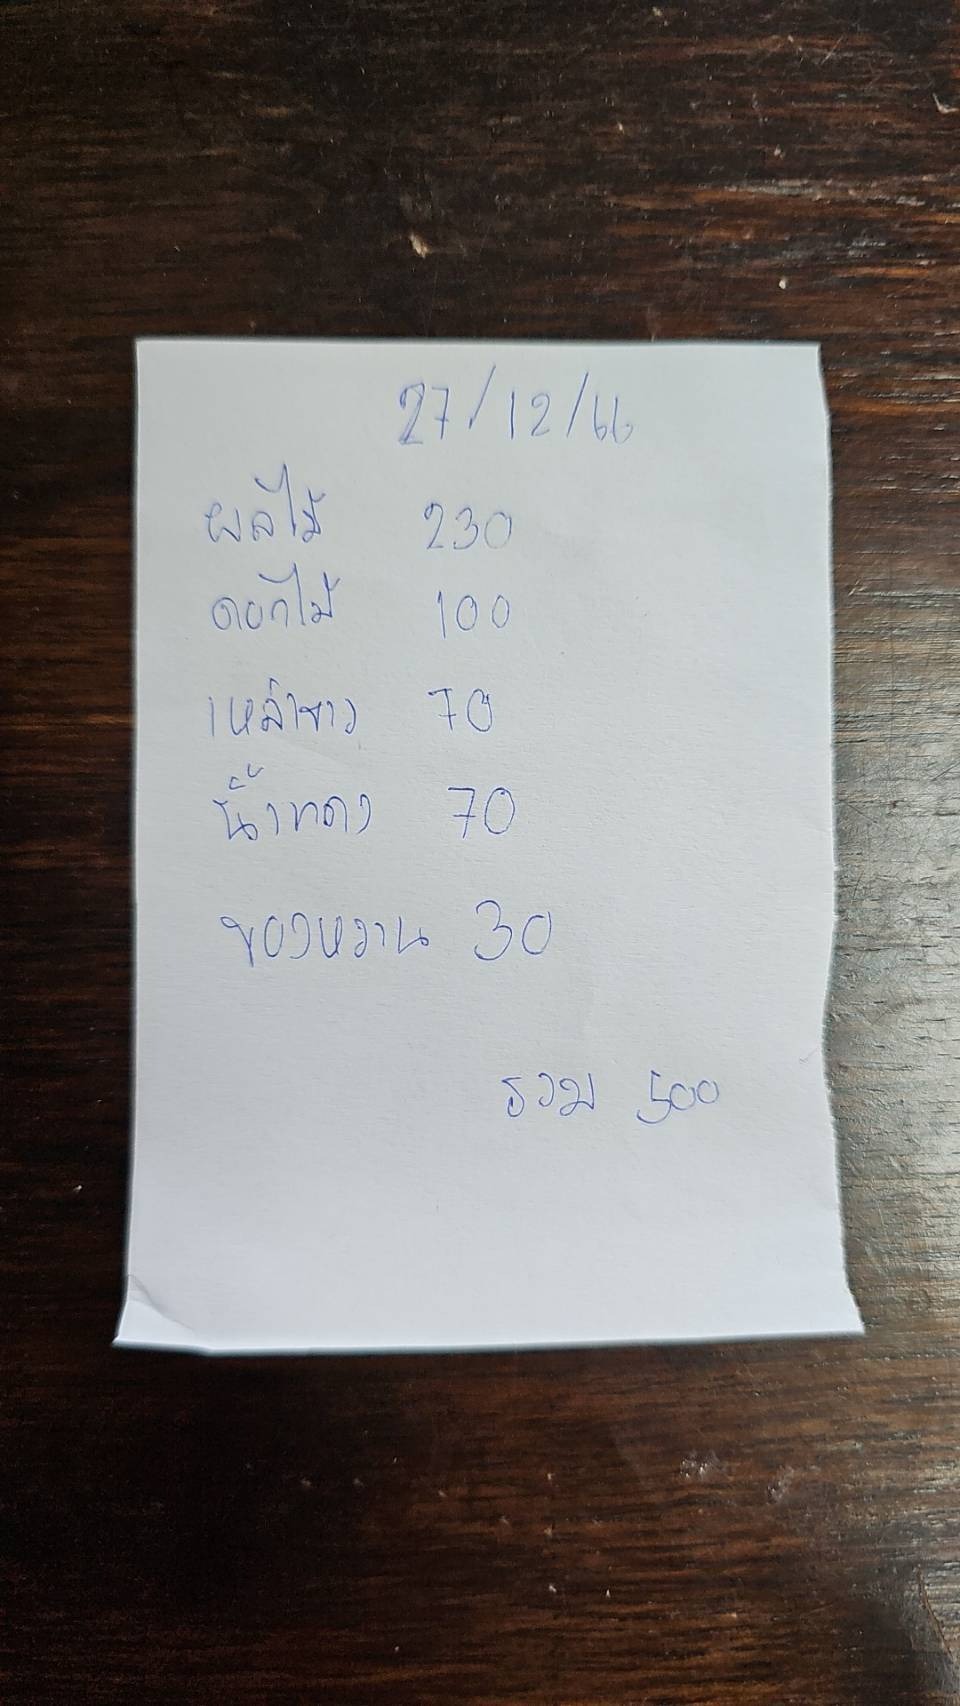 27/12/66
ผลไม้ 230
ดอกไม้ 100
เหล้าขาว 70
น้ำแดง 70
ของหวาน 30
รวม 500